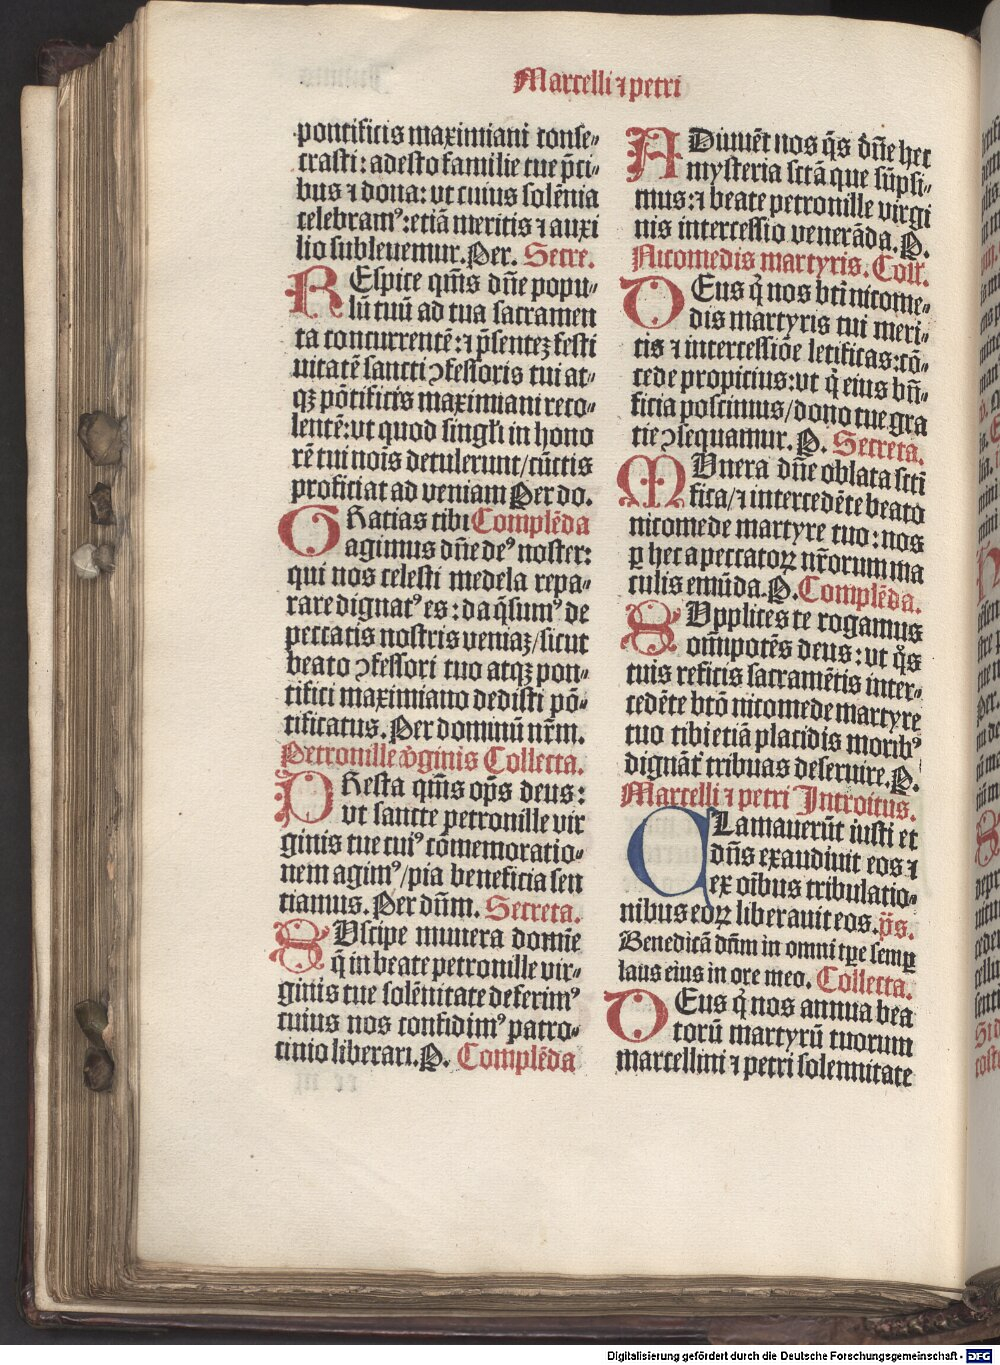 Marcelli ⁊ petri
pontificis maximiani conse⸗
crasti: adesto familie tue p̄ci⸗
bus ⁊ dona: vt cuius solēnia
celebramꝰ: etiā meritis ⁊ auxi
lio subleuemur. Per. Secre.
REspice q̄m̄s dn̄e popu⸗
lū tuū ad tua sacramen
ta concurrentē: ⁊ p̄sentez festi
uitatē sancti ꝯfessoris tui at⸗
qꝫ pōtificis maximiani reco⸗
lentē: vt quod singl'i in hono
rē tui noīs detulerunt/ cūctis
proficiat ad veniam Per do.
GRatias tibi Complēda
agimus dn̄e deꝰ noster:
qui nos celesti medela repa⸗
rare dignatꝰ es: da q̄sumꝰ de
peccatis nostris veniaꝫ/ sicut
beato ꝯfessori tuo atqꝫ pon⸗
tifici maximiano dedisti pō⸗
tificatus. Per dominū nr̄m.
Petronille v̓ginis Collecta.
PResta q̄m̄s op̄s deus:
vt sancte petronille vir
ginis tue cuiꝰ cōmemoratio⸗
nem agimꝰ/ pia beneficia sen
tiamus. Per dn̄m. Secreta.
SUscipe munera domīe
q̄ in beate petronille vir⸗
ginis tue solēnitate deferimꝰ
cuius nos confidimꝰ patro⸗
cinio liberari. P. Complēda
ADiuuēt nos q̄s dn̄e hec
mysteria sctā que sūpsi⸗
mus: ⁊ beate petronille virgi
nis intercessio venerāda. P.
Nicomedis martyris. Coll'.
DEus q̇ nos bt̄i nicome⸗
dis martyris tui meri⸗
tis ⁊ intercessiōe letificas: cō⸗
cede propicius: vt q̇ eius bn̄⸗
ficia poscimus/ dono tue gra
tie ꝯsequamur. P. Secreta.
MUnera dn̄e oblata scti
fica/ ⁊ intercedēte beato
nicomede martyre tuo: nos
ꝑ hec a peccatorꝝ nr̄orum ma
culis emūda. P. Complēda.
SUpplices te rogamus
om̄potēs deus: vt q̊s
tuis reficis sacramētis inter⸗
cedēte btō nicomede martyre
tuo tibi etiā placidis moribꝰ
dignāt̄ tribuas deseruire. P.
Marcelli ⁊ petri Introitus.
CLamauerūt iusti et
dn̄s exaudiuit eos ⁊
ex oībus tribulatio⸗
nibus eoꝝ liberauit eos. p̄s.
Benedicā dn̄m in omni tꝑe semꝑ
laus eius in ore meo. Collecta.
DEus q̇ nos annua bea
torū martyrū tuorum
marcellini ⁊ petri solennitate
Digitalisierung gefördert durch die Deutsche Forschungsgemeinschaft - DFG